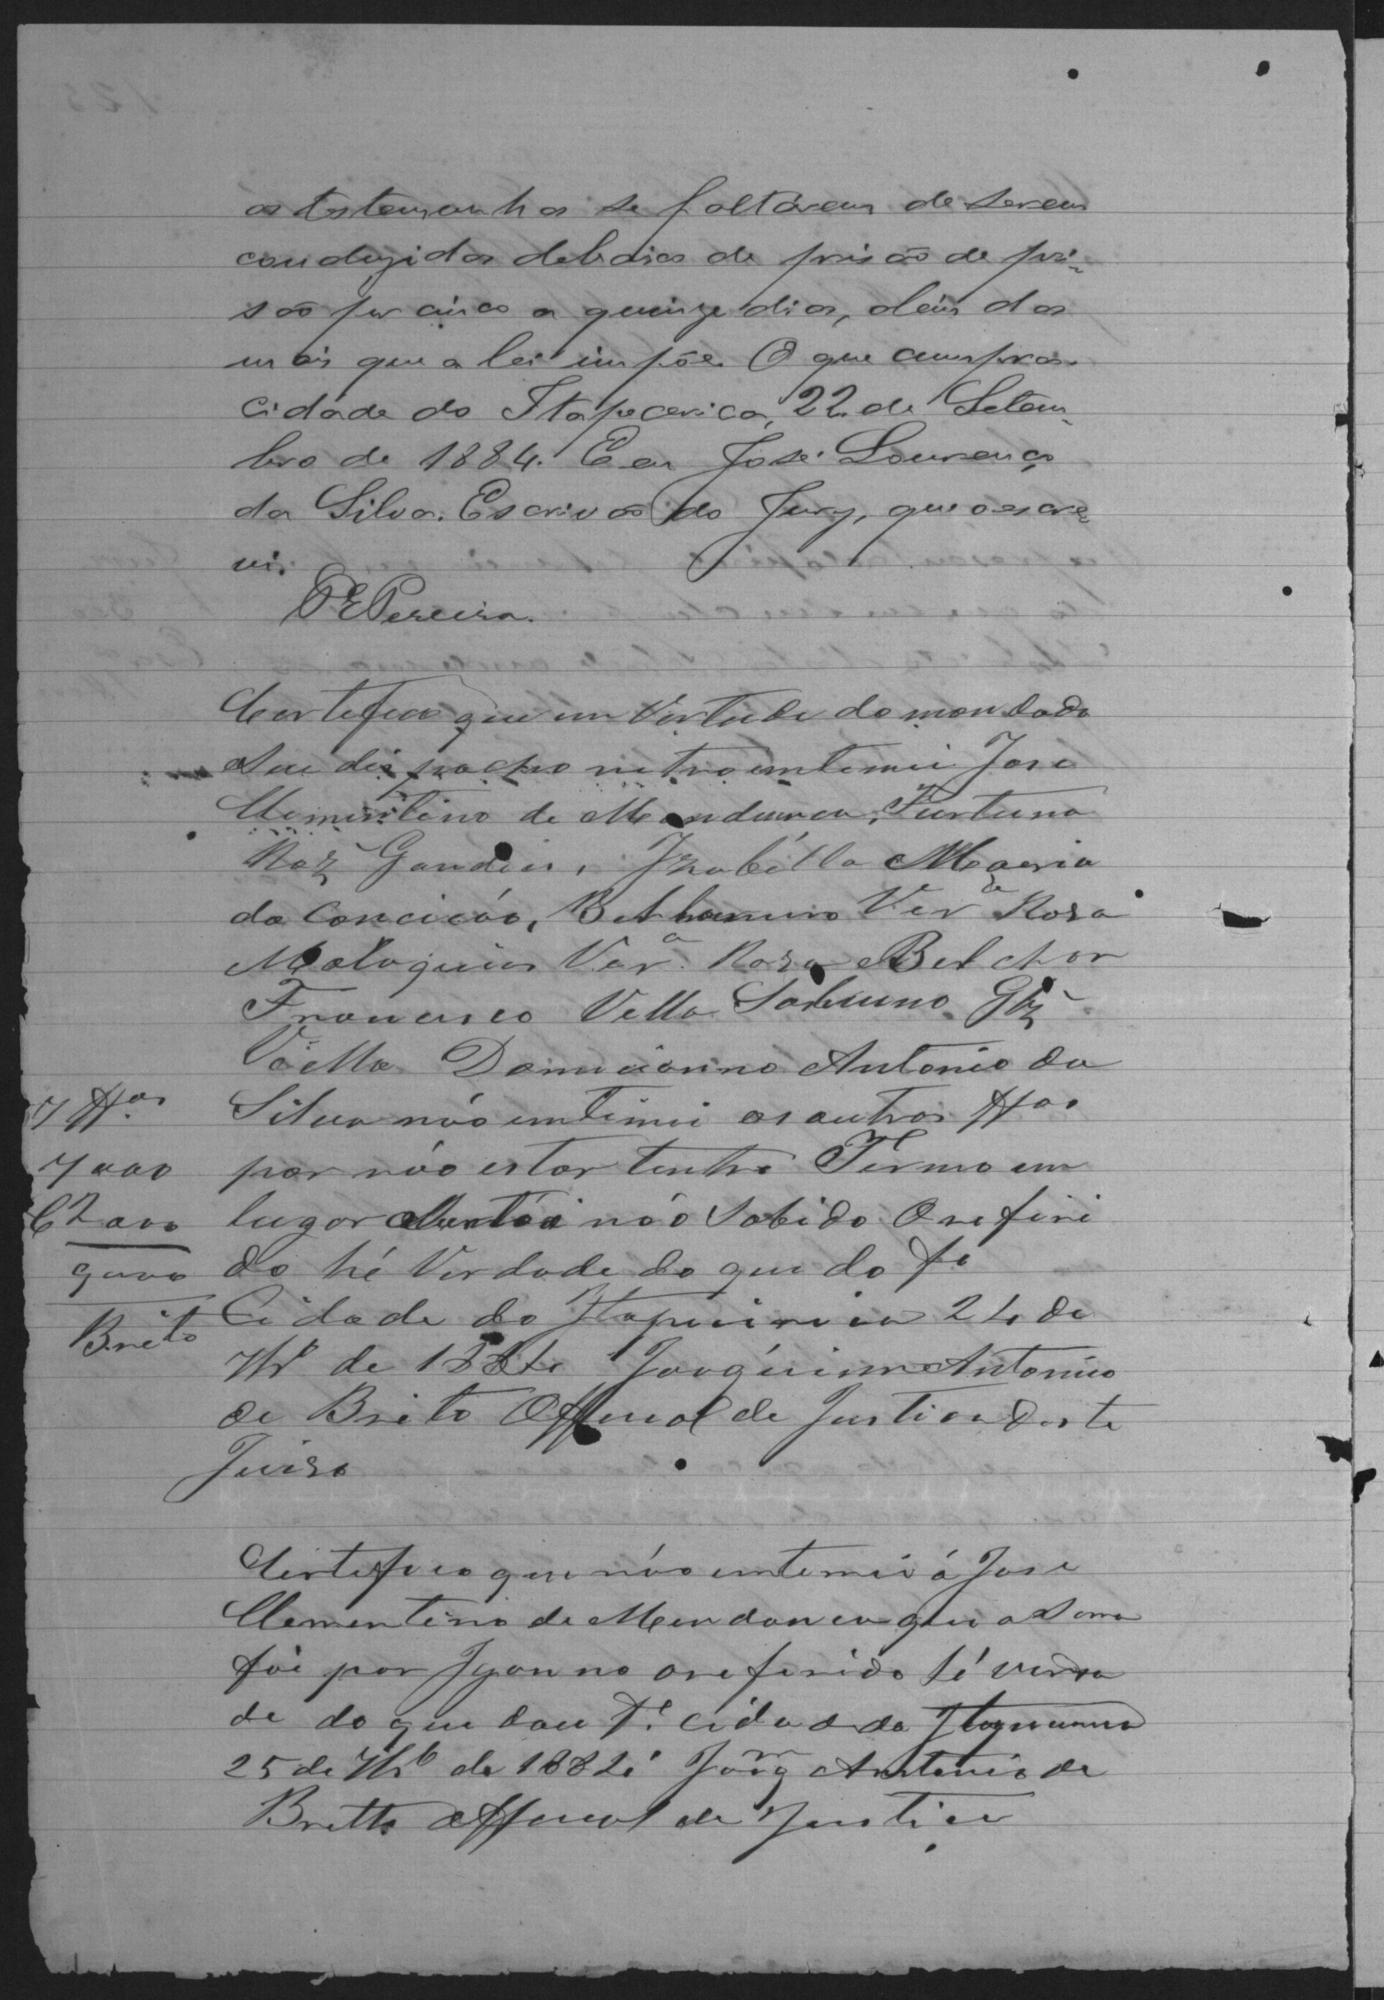 as testemunhas se faltárem de serem
conduzidas debaixo de prisão de pri-
são por cinco a quinze dias, além das
mais que a lei impõe. O que cumpra.
Cidade do Itapecerica, 22 de Setem-
bro de 1884. E eu José Lourenço
da Silva. Escrivão do Jury, que o escre-
vi.
P E Pereira.
Certefico que em Vertude do mandado
Seu dispacho retro intimei Jose
Clementino de Mendonca, Furtuna
Roz Gondin, Izabélla Maria
da Conceicáo, Belharmino Verª Rosa
Malaquias Verª Rosa Belchor
Francisco Vella Saturnino Glz
Vella Damiciano Antonio da
7 ttas Silva não entimei as autras ttas
7000 por não estar tentro Termo em
6 2000 lugar não Sabido O refiri
9000 do hé Verdade do que do fé
Brito Cidade do Itapicirica 24 de
7br de 1884 Joaquim Antonio
de Brito Official de Justica deste
Juiso
Certefico que não entemei á Jose
Clementino de Mendonca que asima
foi por Igano o referido hé verda
de do que dou Fé cidade da
25 de 7br de 1884 Joaqm Antonio de
Britto Official de Justica